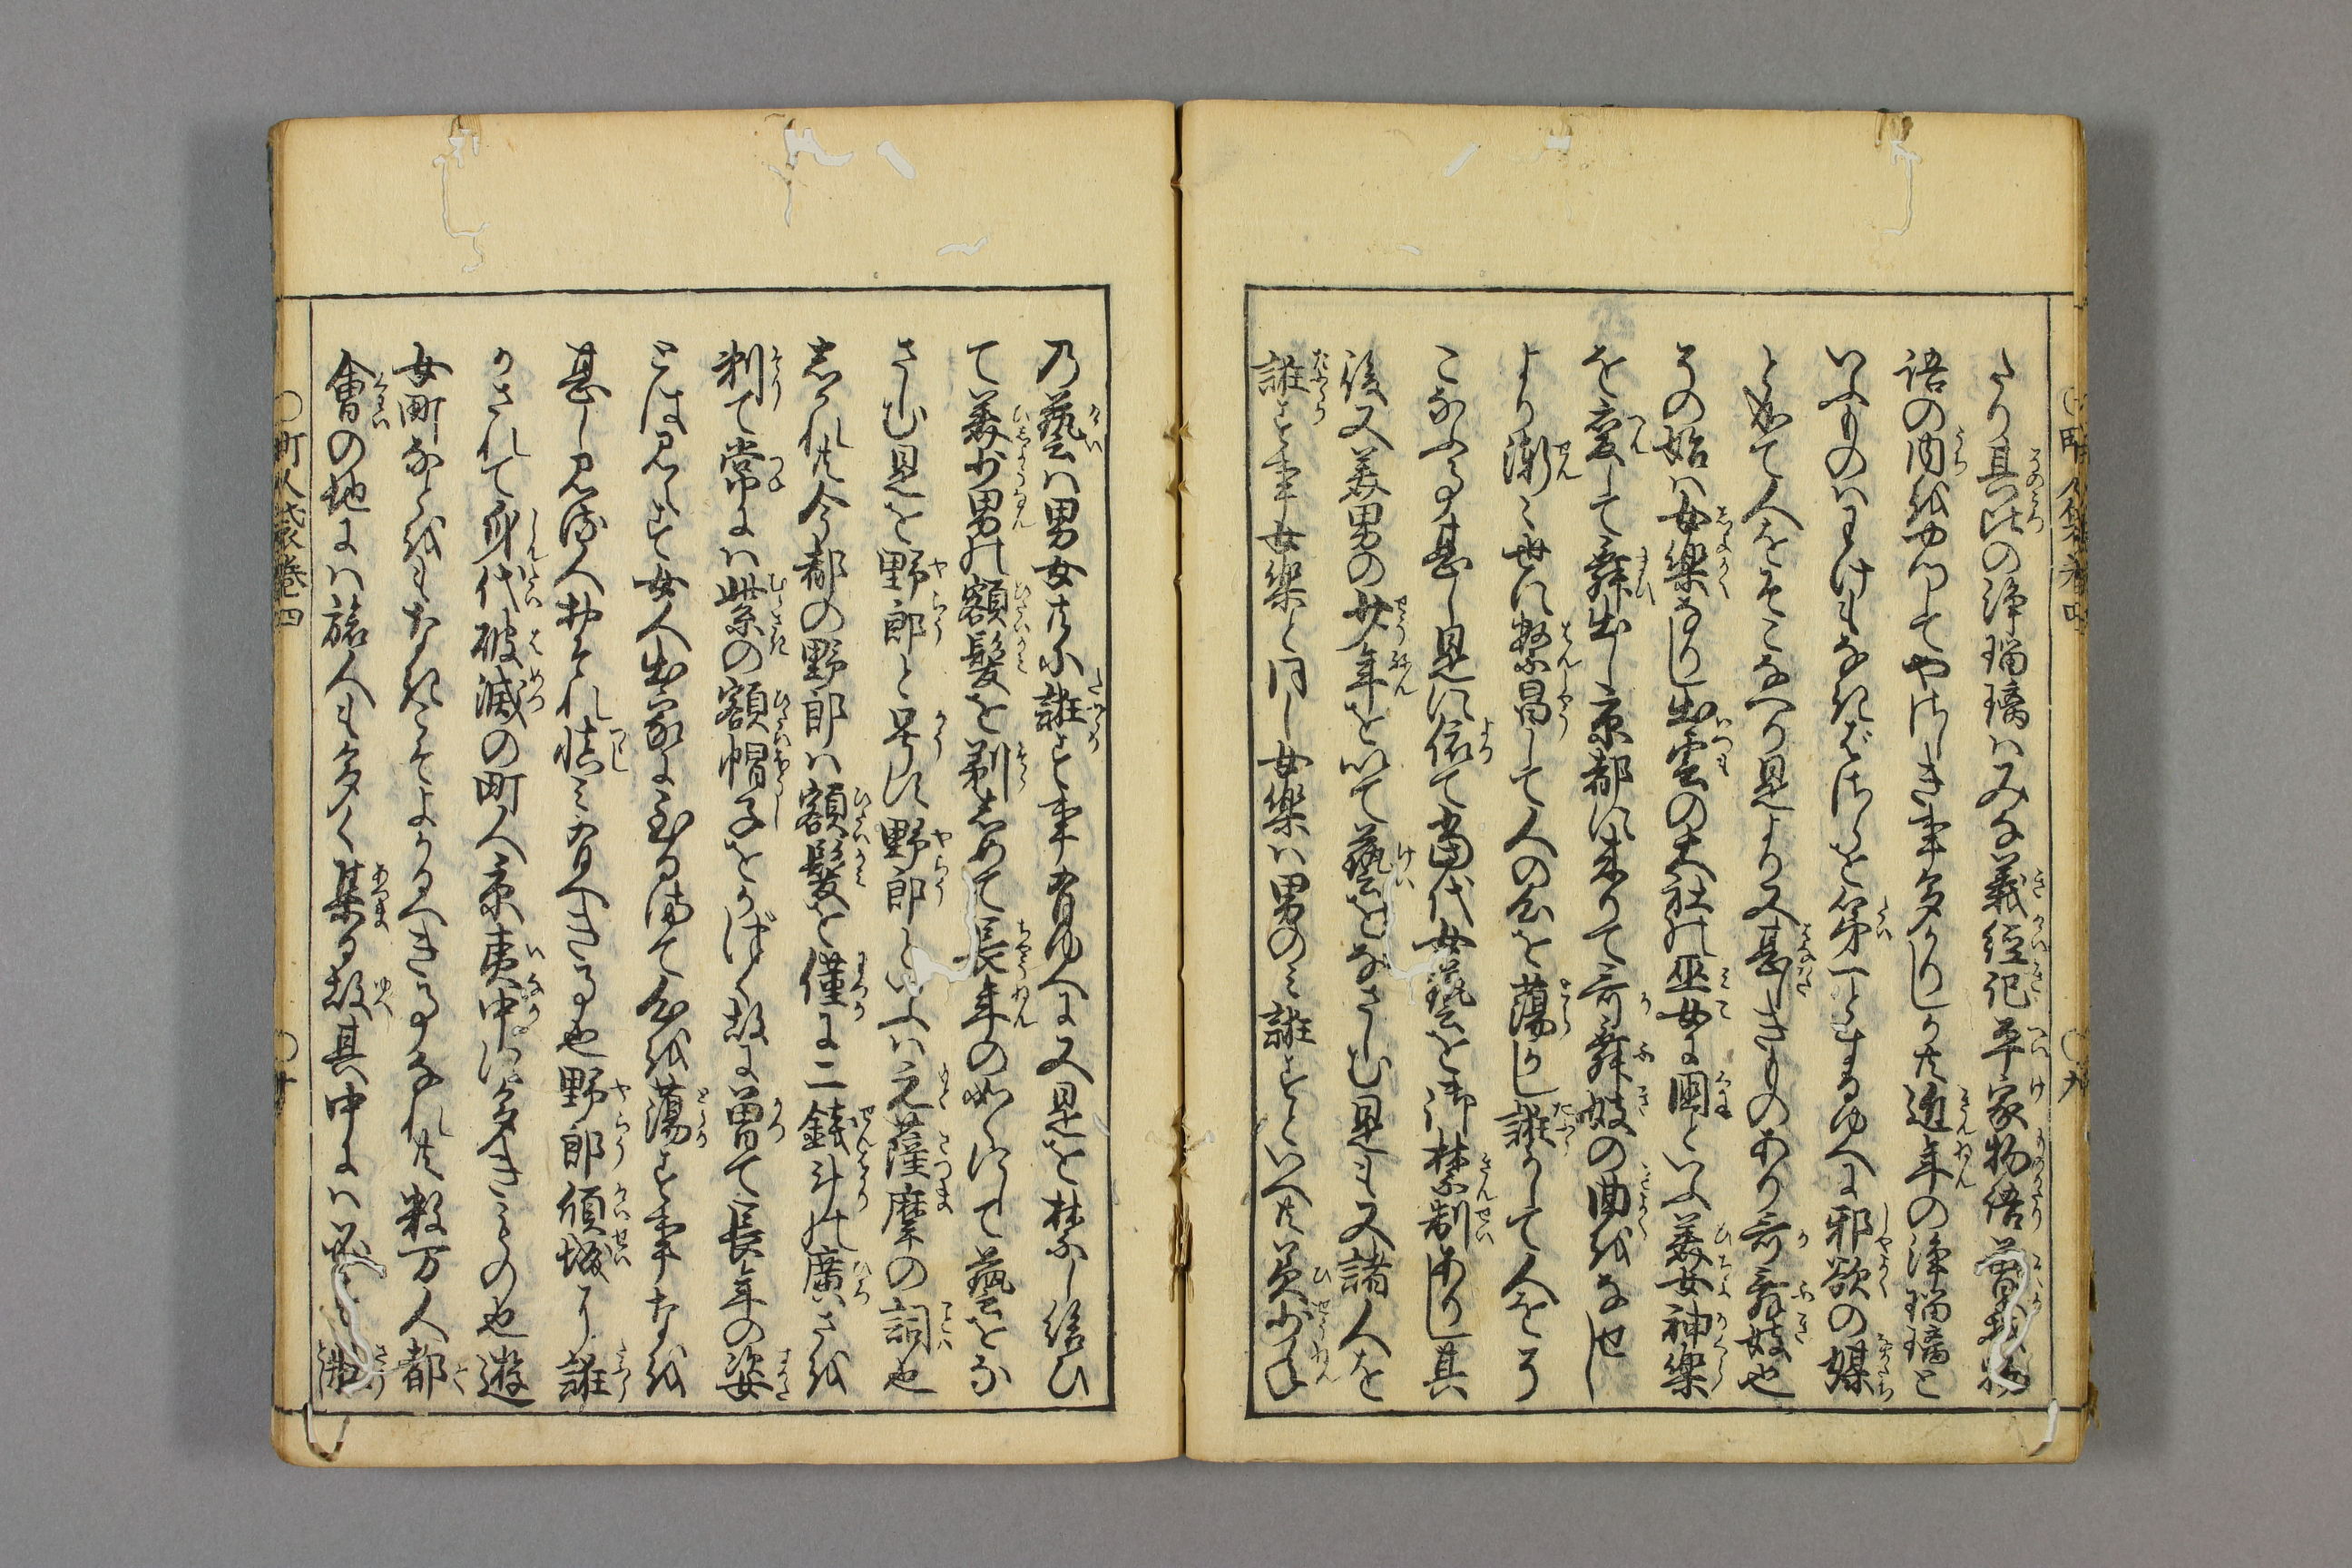 たり其比の浄瑠璃ハみな義経記平家物語曽我物
語の内をやつしてやさしき事多かりしか共近年の浄瑠璃と
いふものハわけもなきばさらを第一とするゆへに邪欲の媒
と成て人をそこなへり是より又甚しきものあり哥舞妓也
その始ハ女樂なりし出雲の大社の巫女に國といふ美女神樂
を変して舞出し京都に来りて哥舞妓の曲をなせし
より漸々世に繁昌して人の心を蕩かし誑かして人をそ
こなふ事甚し是に依て當代女藝を御禁制ありし其
後又美男の少年を以て藝をなさしむ是も又諸人を
誑す事女樂と同し女樂ハ男のミ誑すといへ共美少年
乃藝ハ男女共に誑す事有ゆへに又是を禁し給ひ
て美少男の額髪を剃しめて長年の如くにして藝をな
さしむ是を野郎と号に野郎といふハ元薩摩の詞也
しかれ共今都の野郎ハ額髪を僅に二銭斗の廣さを
剃て常にハ紫の額帽子をかぶく故に曽て長年の姿
とは見へす女人出家に至る迄て心を蕩す事なを
甚し見る人おそれ慎ミ有へき事也野郎傾城に誑
かされて身代破滅の町人京夷中に多きもの也遊
女町なくをもなきこそよかるへき事なれ共数万人都
會の地にハ旅人も多く集る故其中にハ
町人袋巻四